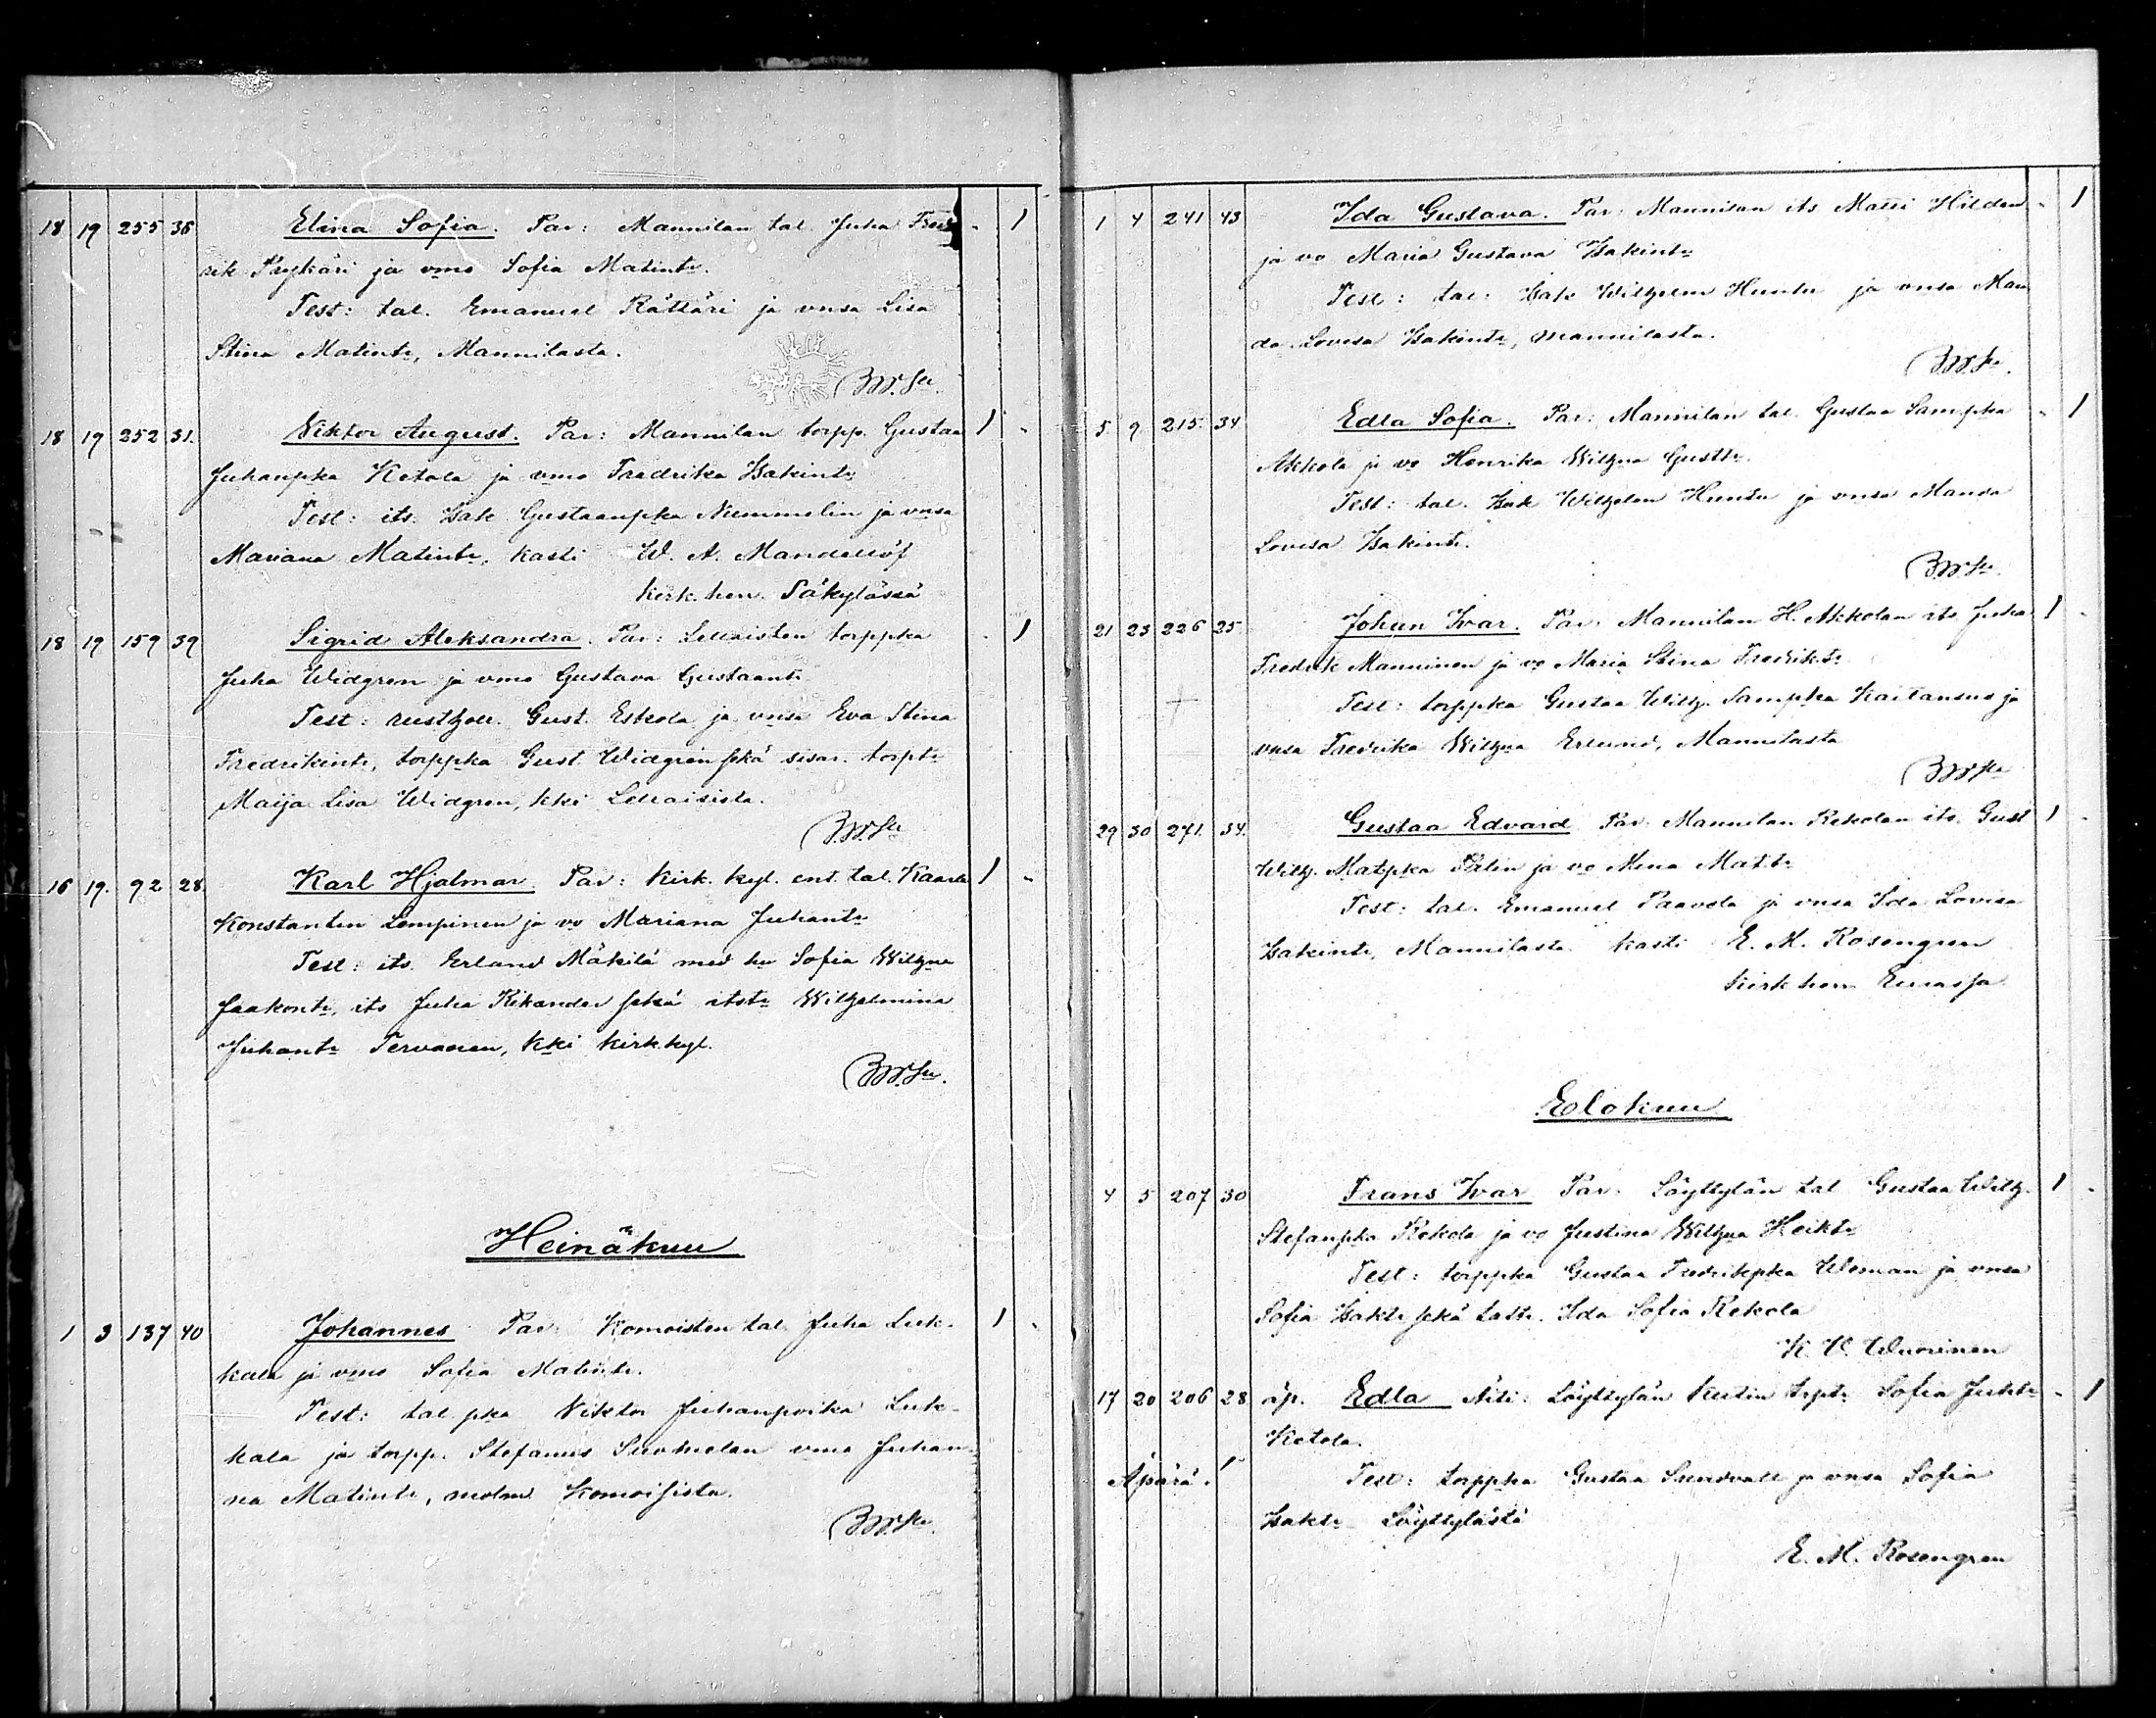 18 19 255 38 Elina Sofia. Par: Mannilan tal. Juha Fred - 1
rik Prykäri ja vmo Sofia Matintr.
Test: tal. Emanuel Rättäri ja vnsa Lisa
Stina Matintr, Mannilasta.
18 19 252 31. Viktor August. Par: Mannilan torpp. Gustaa 1 -
Juhanpka Ketola ja vmo Fredrika Isakintr
Test: its. Isak Gustaanpka Nummelin ja vnsa
Mariana Matintr, kasti W. A. Mandellöf
kirk. hen. Säkylässä
18 19 159 39 Sigrid Aleksandra. Par: Lellaisten torppka - 1
Juha Widgren ja vmo Gustava Gustaantr
Test: rusth. Gust. Eskola ja vnsa Eva Stina
Fredrikintr, torppka Gust. Widgren sekä sisar. torptr
Maija Lisa Widgren, kki Lellaisista.
16 19. 92 28. Karl Hjalmar. Par: kirk. kyl. ent. tal. Kaarle 1 -
Konstantin Lempinen ja vo Mariana Juhantr
Test: its. Erland Mäkilä med hu Sofia Wilhna
Jaakontr, its Juha Rikander sekä itstr Wilhelmina
Juhantr Tervanen, kki kirk. kyl.
Heinäkuu
1 3 137 40 Johannes Par: Komoisten tal. Juha Luk- 1 -
kala ja vmo Sofia Matintr.
Test: tal. pka Viktor Juhanpoika Luk-
kala ja torpp. Stefanus vmo Juhan-
na Matintr, molm. Komoisista.
1 4 241 43 Ida Gustava. Par: Mannilan its Matti Hilden - 1
ja vo Maria Gustava Isakintr
Test: tal: Isak Wilhelm Huntu ja vnsa Man
da Lovisa Isakintr, Mannilasta.
5. 9 215 34 Edla Sofia. Par: Mannilan tal. Gustaa Sampka - 1
Akkola ja vo Henrika Wilhna Gusttr.
Test: tal. Isak Wilhelm Huntu ja vnsa Manda
Lovisa Isakintr.
21 23 226 25 Johan Ivar. Par: Mannilan H. Akkolan its Juha 1 -
Fredrik Manninen ja vo Maria Stina Fredriktr
Test: torppka Gustaa Wilh. Sampka Kaitansuo ja
vnsa Fredrika Wilhna Erlund, Mannilasta
29 30 271. 34. Gustaa Edvard Par. Mannilan Rekolan its. Gust 1 -
Wilh. Matpka ja vo Mina Mattr
Test: tal. Emanuel Paavola ja vnsa Ida Lovisa
Isakintr, Mannilasta. kasti E. M. Rosengren
kirk hen Eurassa
Elokuu
4 5 207 30 Frans Ivar Par. Löyttylän tal Gustaa Wilh. 1 -
Stefanpka Rekola ja vo Justina Wilhna Heiktr
Test: torppka Gustaa Fredrikpka ja vnsa
Sofia Isaktr sekä taltr. Ida Sofia Rekola
K. V. Wuorinen
17 20 206 28 äp. Edla Äiti: Löyttylän torptr Sofia Juhtr - 1
Ketola.
Äpärä! Test: torppka Gustaa Sundvall ja vnsa Sofia
Isaktr Löyttylästä
E. M. Rosengren